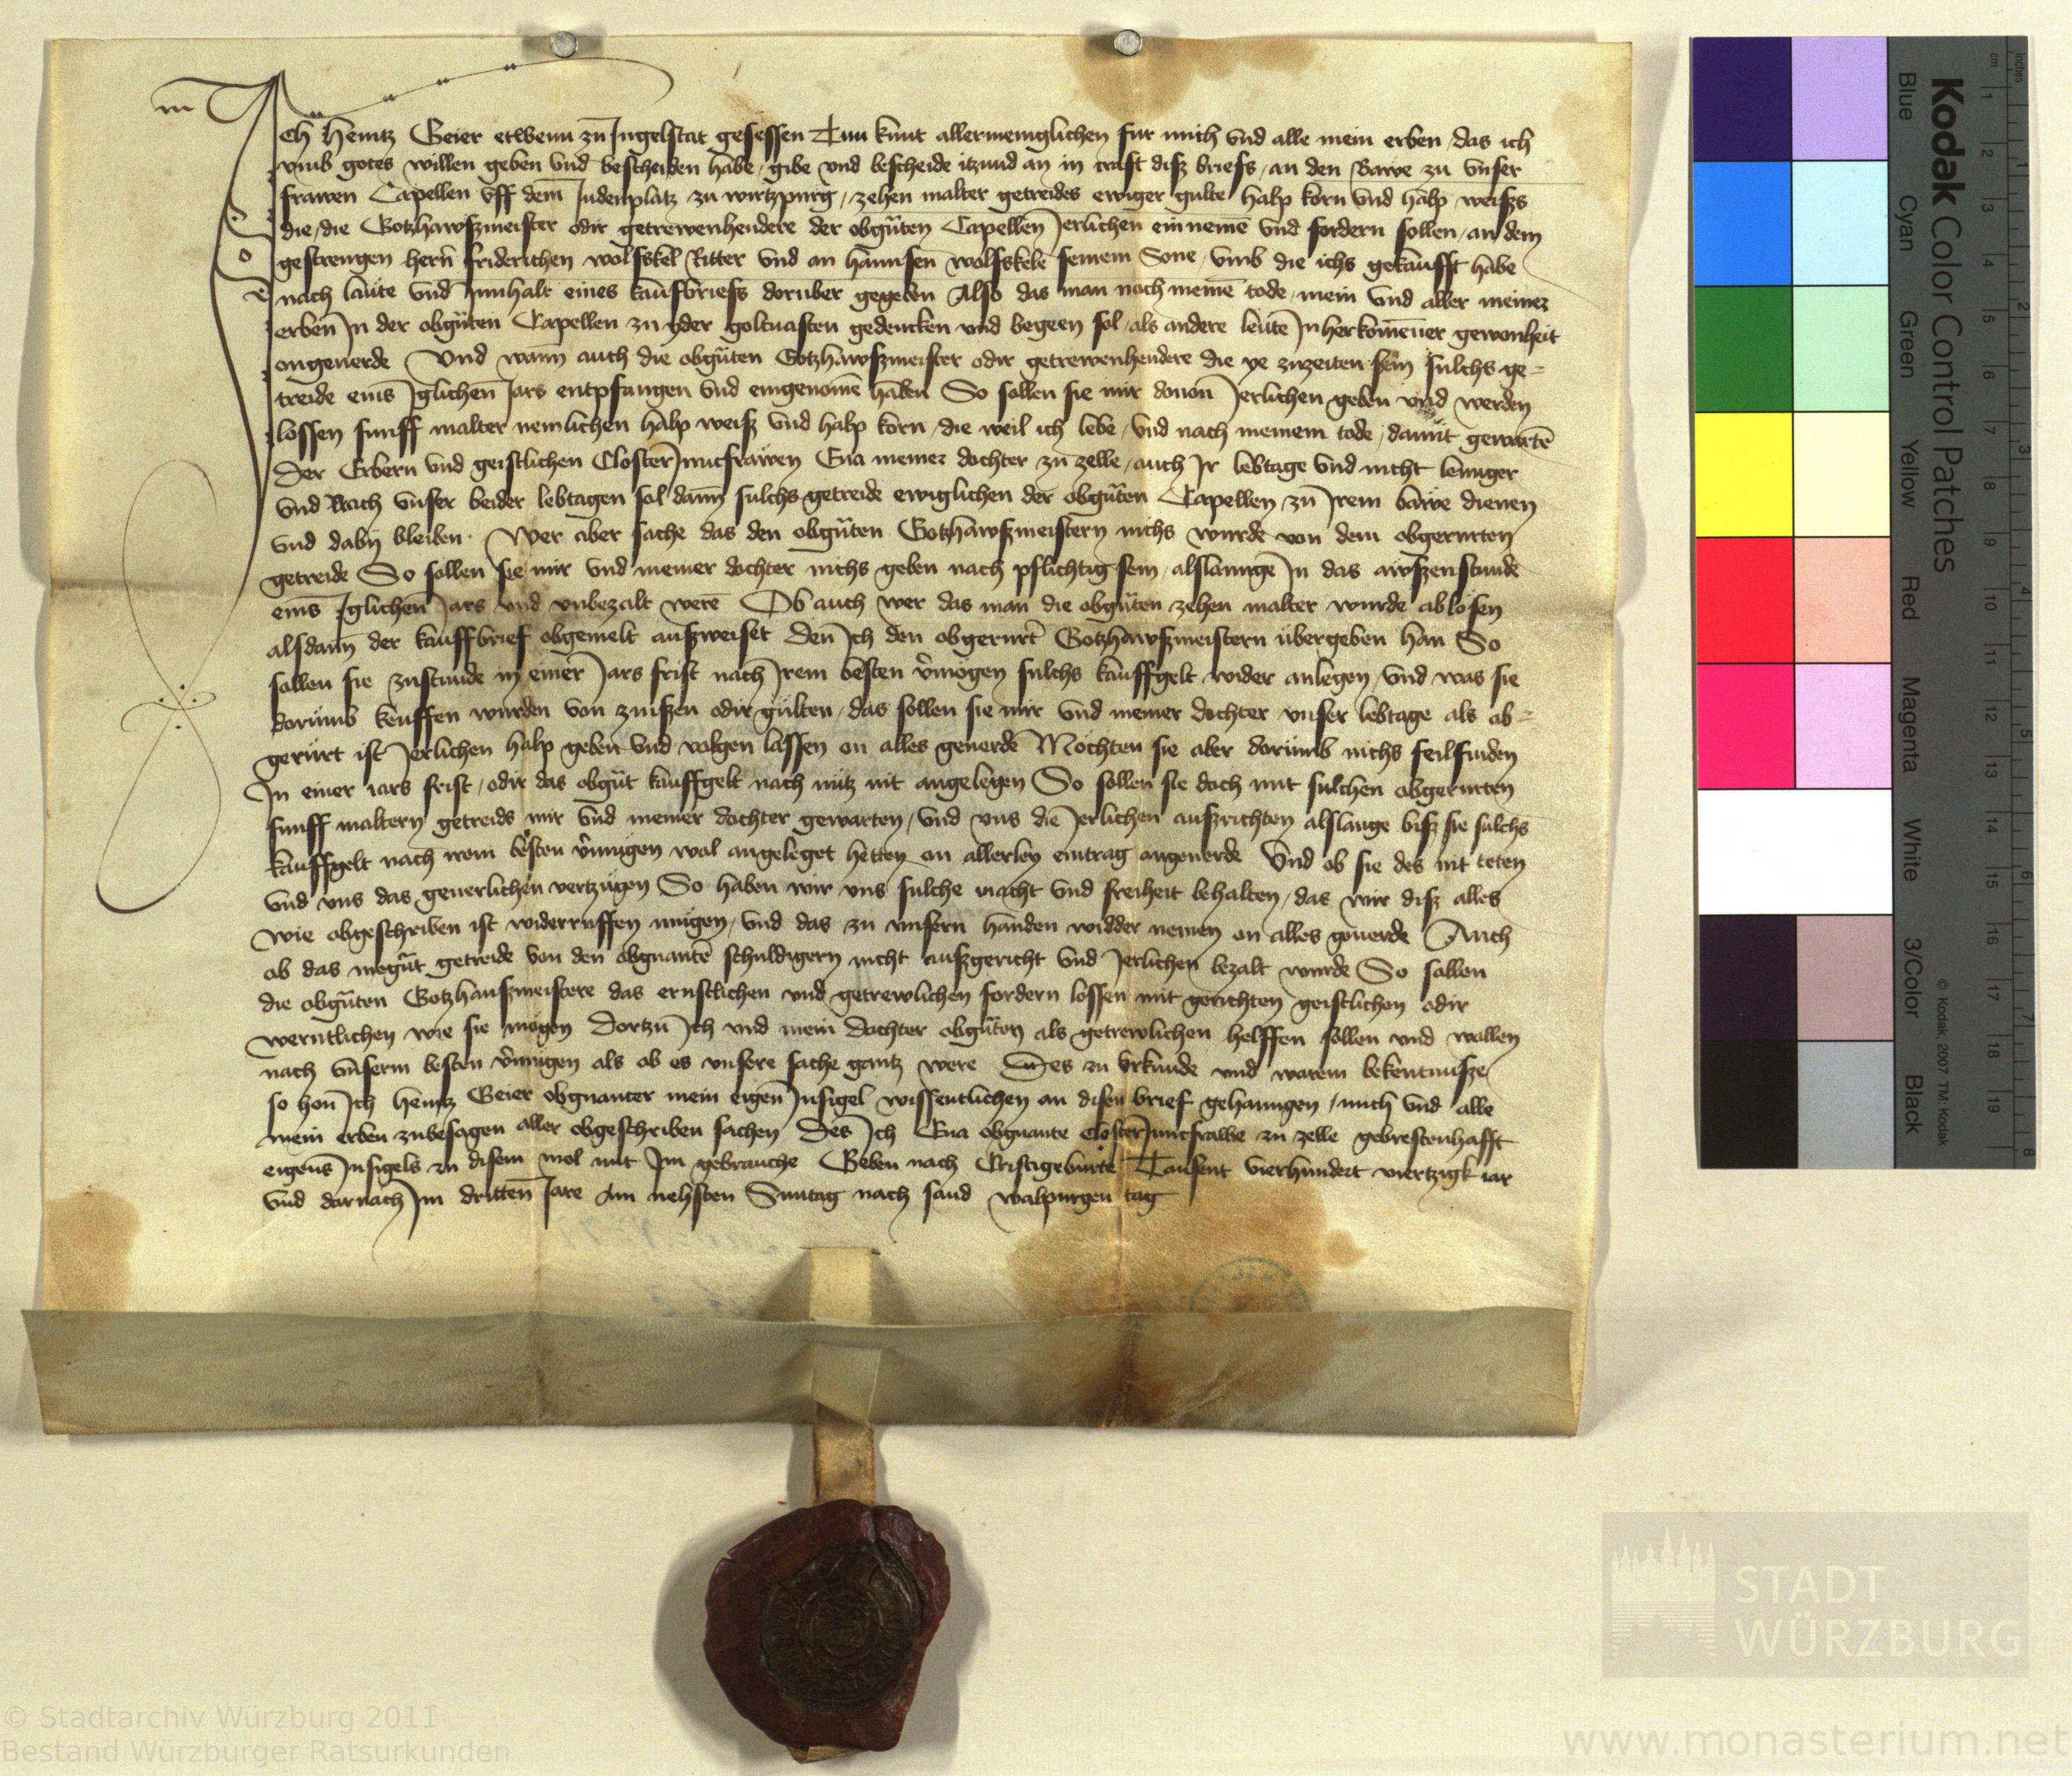 Ich Heintz Geier etwenn zu Ingelstat gesessen Tun kunt allermeniglichen fur mich vnd alle mein erben das ich
vmb gotes willen geben vnd bescheiden habe, gibe vnd bescheide itzund an in craft disz briefs, an den Bawe zu vnser
frawen Capellen vff dem Judenplatz zu wirtzpurg, zehen malter getreides ewiger gulte halp korn vnd halp weißs
die, die Gotzhawszmeister odir getrewenhendere der obgnten Capellen Jerlichen einnemē vnd fordern sollen, an dem
gestrengen hern friderichen wolfskel Ritter vnd an hannsen wolfskele seinem Sone, vmb die ichs gekaufft habe
nach laute vnd Innhalt eines kaufbriefs doruber gegeben Also das man noch meinē tode, mein vnd aller meiner
erben In der obgnten Capellen zu yder goltuasten gedencken vnd begeen sol als andere leute In herkomēner gewonheit
ongeuerde Vnd wann auch die obgnten Gotzhawszmeister odir getrewenhendere die ye zuzeiten sein sulchs ge-
treide eins Iglichen Jars entpfangen vnd eingenomē haben So sollen sie mir douon Jerlichen geben vnd werden
lossen funff malter nemlichen halp weisz vnd halp korn, die weil ich lebe, vnd nach meinem tode, damit gewartē
der Erbern vnd geistlichen Closter Juncfrawen Eua meiner dochter zu zelle, auch Ir lebtage vnd nicht lenniger
vnd Nach vnser beider lebtagen sol dann sulchs getreide ewiglichen der obgnten Capellen zu Irem bawe dienen
vnd dabÿ bleiben. Wer aber sache das den obgnten Gotzhawszmeistern nichs wurde von dem obgerurten
getreide So sollen sie mir vnd meiner dochter nichs geben nach pflichtig sein, alslannge In das awszenstunde
eins Iglichen Jars vnd vnbezalt werē Ob auch wer das man die obgnten zehen malter wurde ablosen
alsdann der kauffbrief obgemelt auszweiset den Ich den obgerurt Gotzhawszmeistern ubergeben han So
sollen sie zustunde in einer Jars frist nach Irem besten vmogen sulchs kauffgelt wider anlegen, vnd was sie
dorumb keuffen wurden von zinszen odir gulten, das sollen sie mir vnd meiner dochter vnser lebtage als ob-
gerurt ist Jerlichen halp geben vnd volgen lassen on alles geuerde Mochten sie aber dorumb nichs feilfinden
In einer iars frist, odir das obgnt kauffgelt nach nutz nit angelegen So sollen sie doch mit sulchen obgerurten
funff maltern getreids mir vnd meiner dochter gewarten, vnd vns die Jerlichen auszrichten alslange bisz sie sulchs
kauffgelt nach irem besten vmugen wol angeleget hetten on allerley eintrag ongeuerde Vnd ob sie des nit teten
vnd vns das geuerlichen vertzugen So haben wir vns sulche macht vnd freiheit behalten, das wir disz alles
wie obgeschriben ist widerruffen mugen, vnd das zu vnsern handen widder nemen on alles geuerde Auch
ob das megnt getreide von den obgnantē schuldigern nicht auszgericht vnd Jerlichen bezalt wurde So sollen
die obgnten Gotzhauszmeistere das ernstlichen vnd getrewlichen fordern lossen mit gerichten geistlichen odir
werntlichen wie sie mogen Dortzu Ich vnd mein dochter obgnten als getrewlichen helffen sollen vnd wollen
nach vnserm besten vmugen als ob es vnsere sache gantz were Des zu vrkunde vnd warem bekentnusze
so hon Ich Heintz Geier obgnanter mein eigen Insigel wissentlichen an disen brief gehanngen, mich vnd alle
mein erben zubesagen aller obgeschriben sachen Des Ich Eua obgnante Closter Juncfrawe zu zelle gebrestenhafft
eigens Insigels zu disem mol mit Im gebrauche Geben nach Cristigeburte Tausent vierhundert viertzigk iar
vnd darnach Im dritten Jare Am nehsten Suntag nach sand walpurgen tag
Kodak Color Control Patches
Blue Cyan Green Yellow Red Magenta White 3/Color Black
© Kodak, 2007 TM: Kodak
STADT
WÜRZBURG
© Stadtarchiv Würzburg 2011
Bestand Würzburger Ratsurkunden
www.monasterium.net